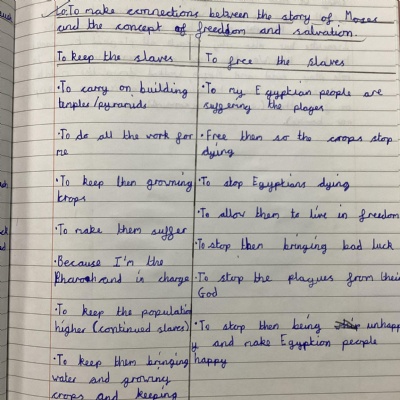 Lo: To make connections between the story of Moses
and the concept of freedom and salvation.
To keep the slaves
To free the slaves
•To carry on building
temples/pyramids
•To do all the work for
me
•To keep then growning
krops
•To make them suffer
•Because I'm the
Pharaoh and in charge
•To keep the population
higher (continued slaves)
•To keep them bringing
water and growing
crops and keeping
•To my Egyptian people are
suffering the plages
•Free then so the crops stop
dying
•To stop Egyptians dying
•To allow them to live in freedom
•To stop then bringing bad luck
•To stop the plagues from their
God
•To stop them being unhapp
y and make Egyption people
happy